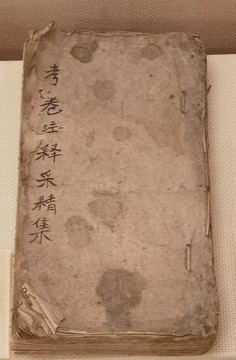 考卷注释采精集